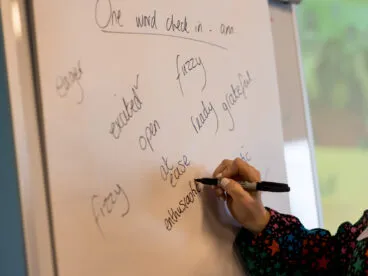 One word check in - am
eager
fuzzy
excited
grateful
ready
open
at
ease
fizzy
enthusiastic